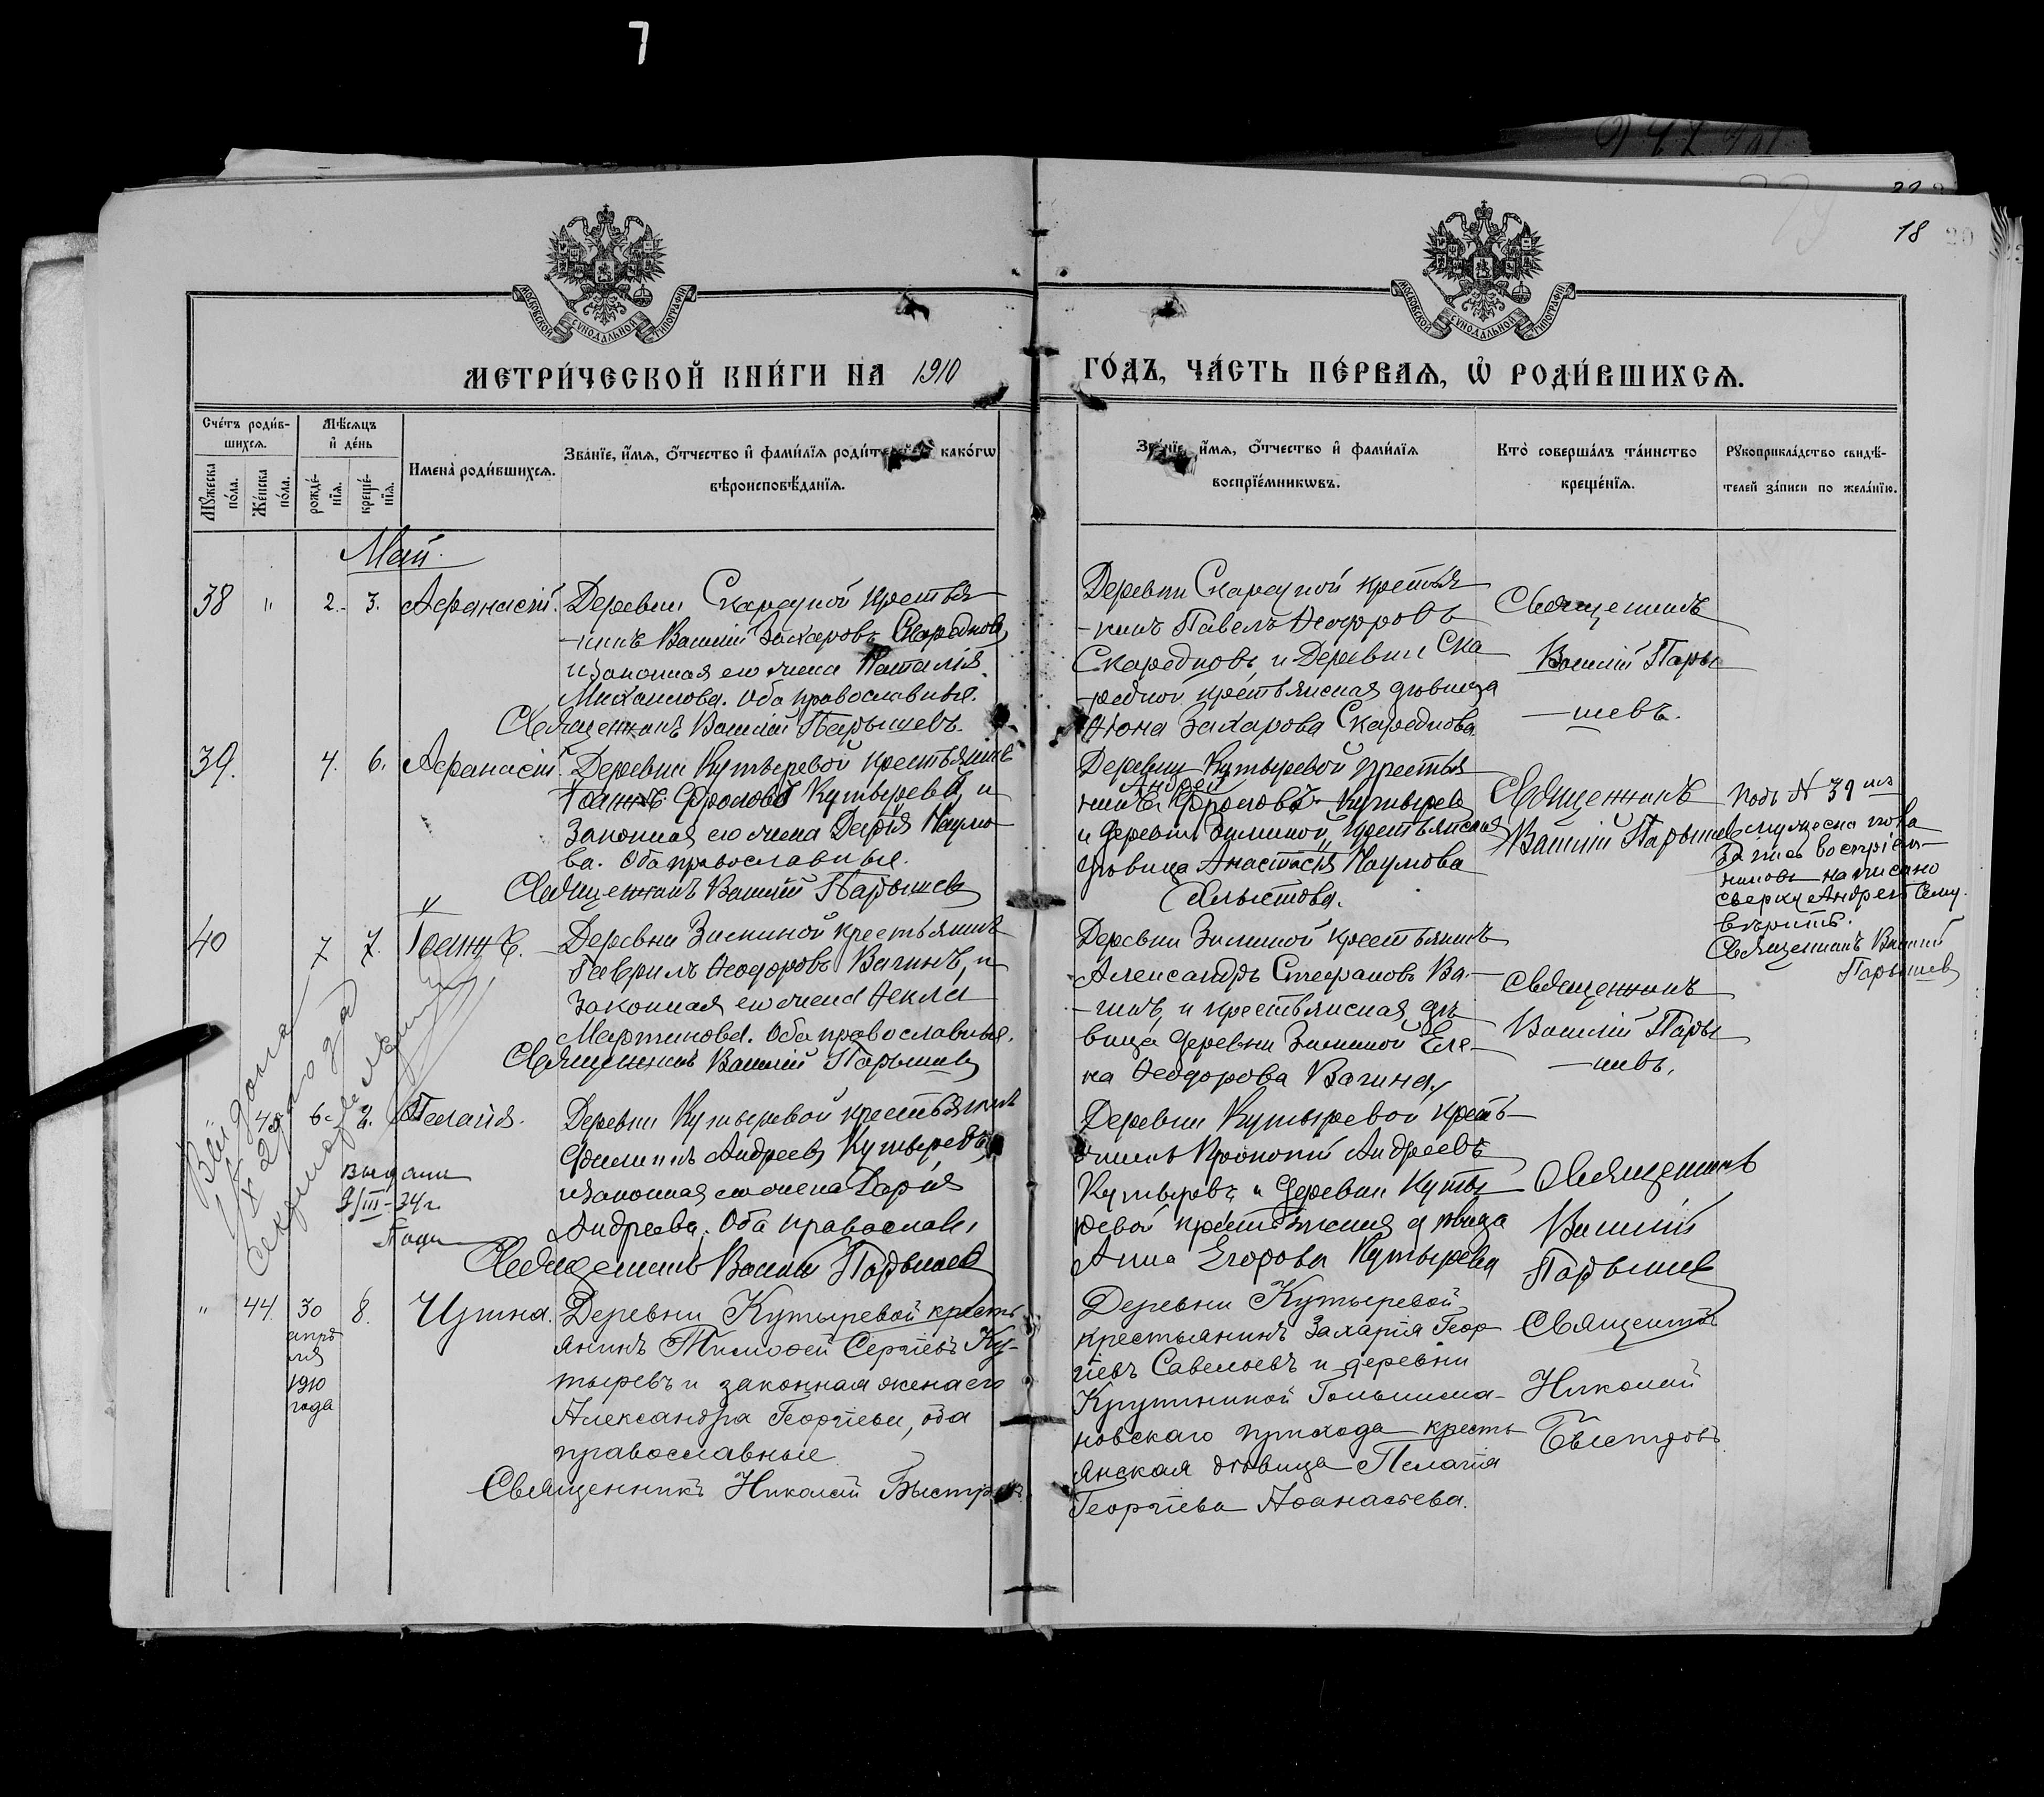 7
18
МОСКОВСКОЙ СѴНОДАЛЬНОЙ ТИПОГРАФІИ
МОСКОВСКОЙ СѴНОДАЛЬНОЙ ТИПОГРАФІИ
МЕТРИ́ЧЕСКОЙ КНИ́ГИ НА 1910 ГО́ДЪ, ЧА́СТЬ ПЕ́РВАЯ, Ѡ҆ РОДИ́ВШИХСЯ.
Сче́тъ роди́вшихся.
Мꙋ́жеска по́ла.
Же́нска по́ла.
Мѣ́сяцъ и҆ де́нь
рожде́нїя.
креще́нїя.
Имена̀ роди́вшихся.
Зва́нїе, и҆́мя, о҆́тчество и҆ фами́лїя роди́телей, како́гѡ
вѣроисповѣ́данїя.
Зва́нїе, и҆́мя, о҆́тчество и҆ фами́лїя
воспрїе́мникѡвъ.
Кто̀ соверша́лъ та́инство
креще́нїя.
Рꙋкоприкла́дство свидѣ́-
телей за́писи по жела́нїю.
Май.
38 " 2. 3. Афанасій. Деревни Скаредной крестья
-нинъ Василій Захаровъ Скаредновъ,
и законная его жена Наталія
Михаилова. Оба православные.
Священникъ Василій Парышевъ.
Деревни Скаредной крестья
-нинъ Павелъ
Скаредновъ, и Деревни Ска
-редной крестьянская дѣвица
Захарова Скареднова
Священникъ
Василій Пары
-шевъ.
39. 4. 6. Афанасій. Деревни Кутыревой крестьянинъ
Іоаннъ Фроловъ Кутыревъ, и
законная его жена Дарія Наумо
ва. Оба православные.
Священникъ Василій Парышевъ
Деревни Кутыревой крестья
Андрей
нинъ Фроловъ Кутыревъ
и деревни Зиминой, крестьянская
дѣвица Анастасія Наумова
Священникъ
Василій Парышевъ
Подъ № 39 мъ
мужеска пола
воспріем-
никовъ написано
сверху Андрей сему
вѣрить.
Священникъ Василій
Парышевъ
40 " 7 7. Іоаннъ. Деревни Зиминой крестьянинъ
Гаврилъ Ѳеодоровъ Вагинъ, и
законная его жена Ѳекла
Мартинова. Оба православные.
Священникъ Василій Парышевъ
Деревни Зиминой крестьянинъ
Александръ Стефановъ Ва-
-гинъ, и крестьянская дѣ
вица деревни Зиминой Еле-
на Ѳеодорова Вагина.
Священникъ
Василій Пары
-шевъ.
" 43 6. 8. Пелагія. Деревни Кутыревой крестьянинъ
Филиппъ Андреевъ Кутыревъ,
и законная его жена Дарія
Андреева. Оба православн.
Священникъ Василій Парышевъ
Выдана
9/III-34 г.
Деревни Кутыревой кресть-
янинъ Прокопій Андреевъ
Кутыревъ, и деревни Куты
ревой крестьянская дѣвица
Анна Егорова Кутырева
Священникъ
Василій
Парышевъ
" 44. 30 8. Ирина. Деревни Кутыревой кресть
апрѣ
ля
1910
года
янинъ Тимоѳей Сергіевъ Ку-
тыревъ и законная жена его
Александра Георгіева, оба
православные
Священникъ Николай Быстровъ
Деревни Кутыревой
крестьянинъ Захарія Геор
гіевъ Савельевъ и деревни
новскаго прихода кресть
янская дѣвица Пелагія
Георгіева Аѳанасьева.
Священникъ
Николай
Быстровъ